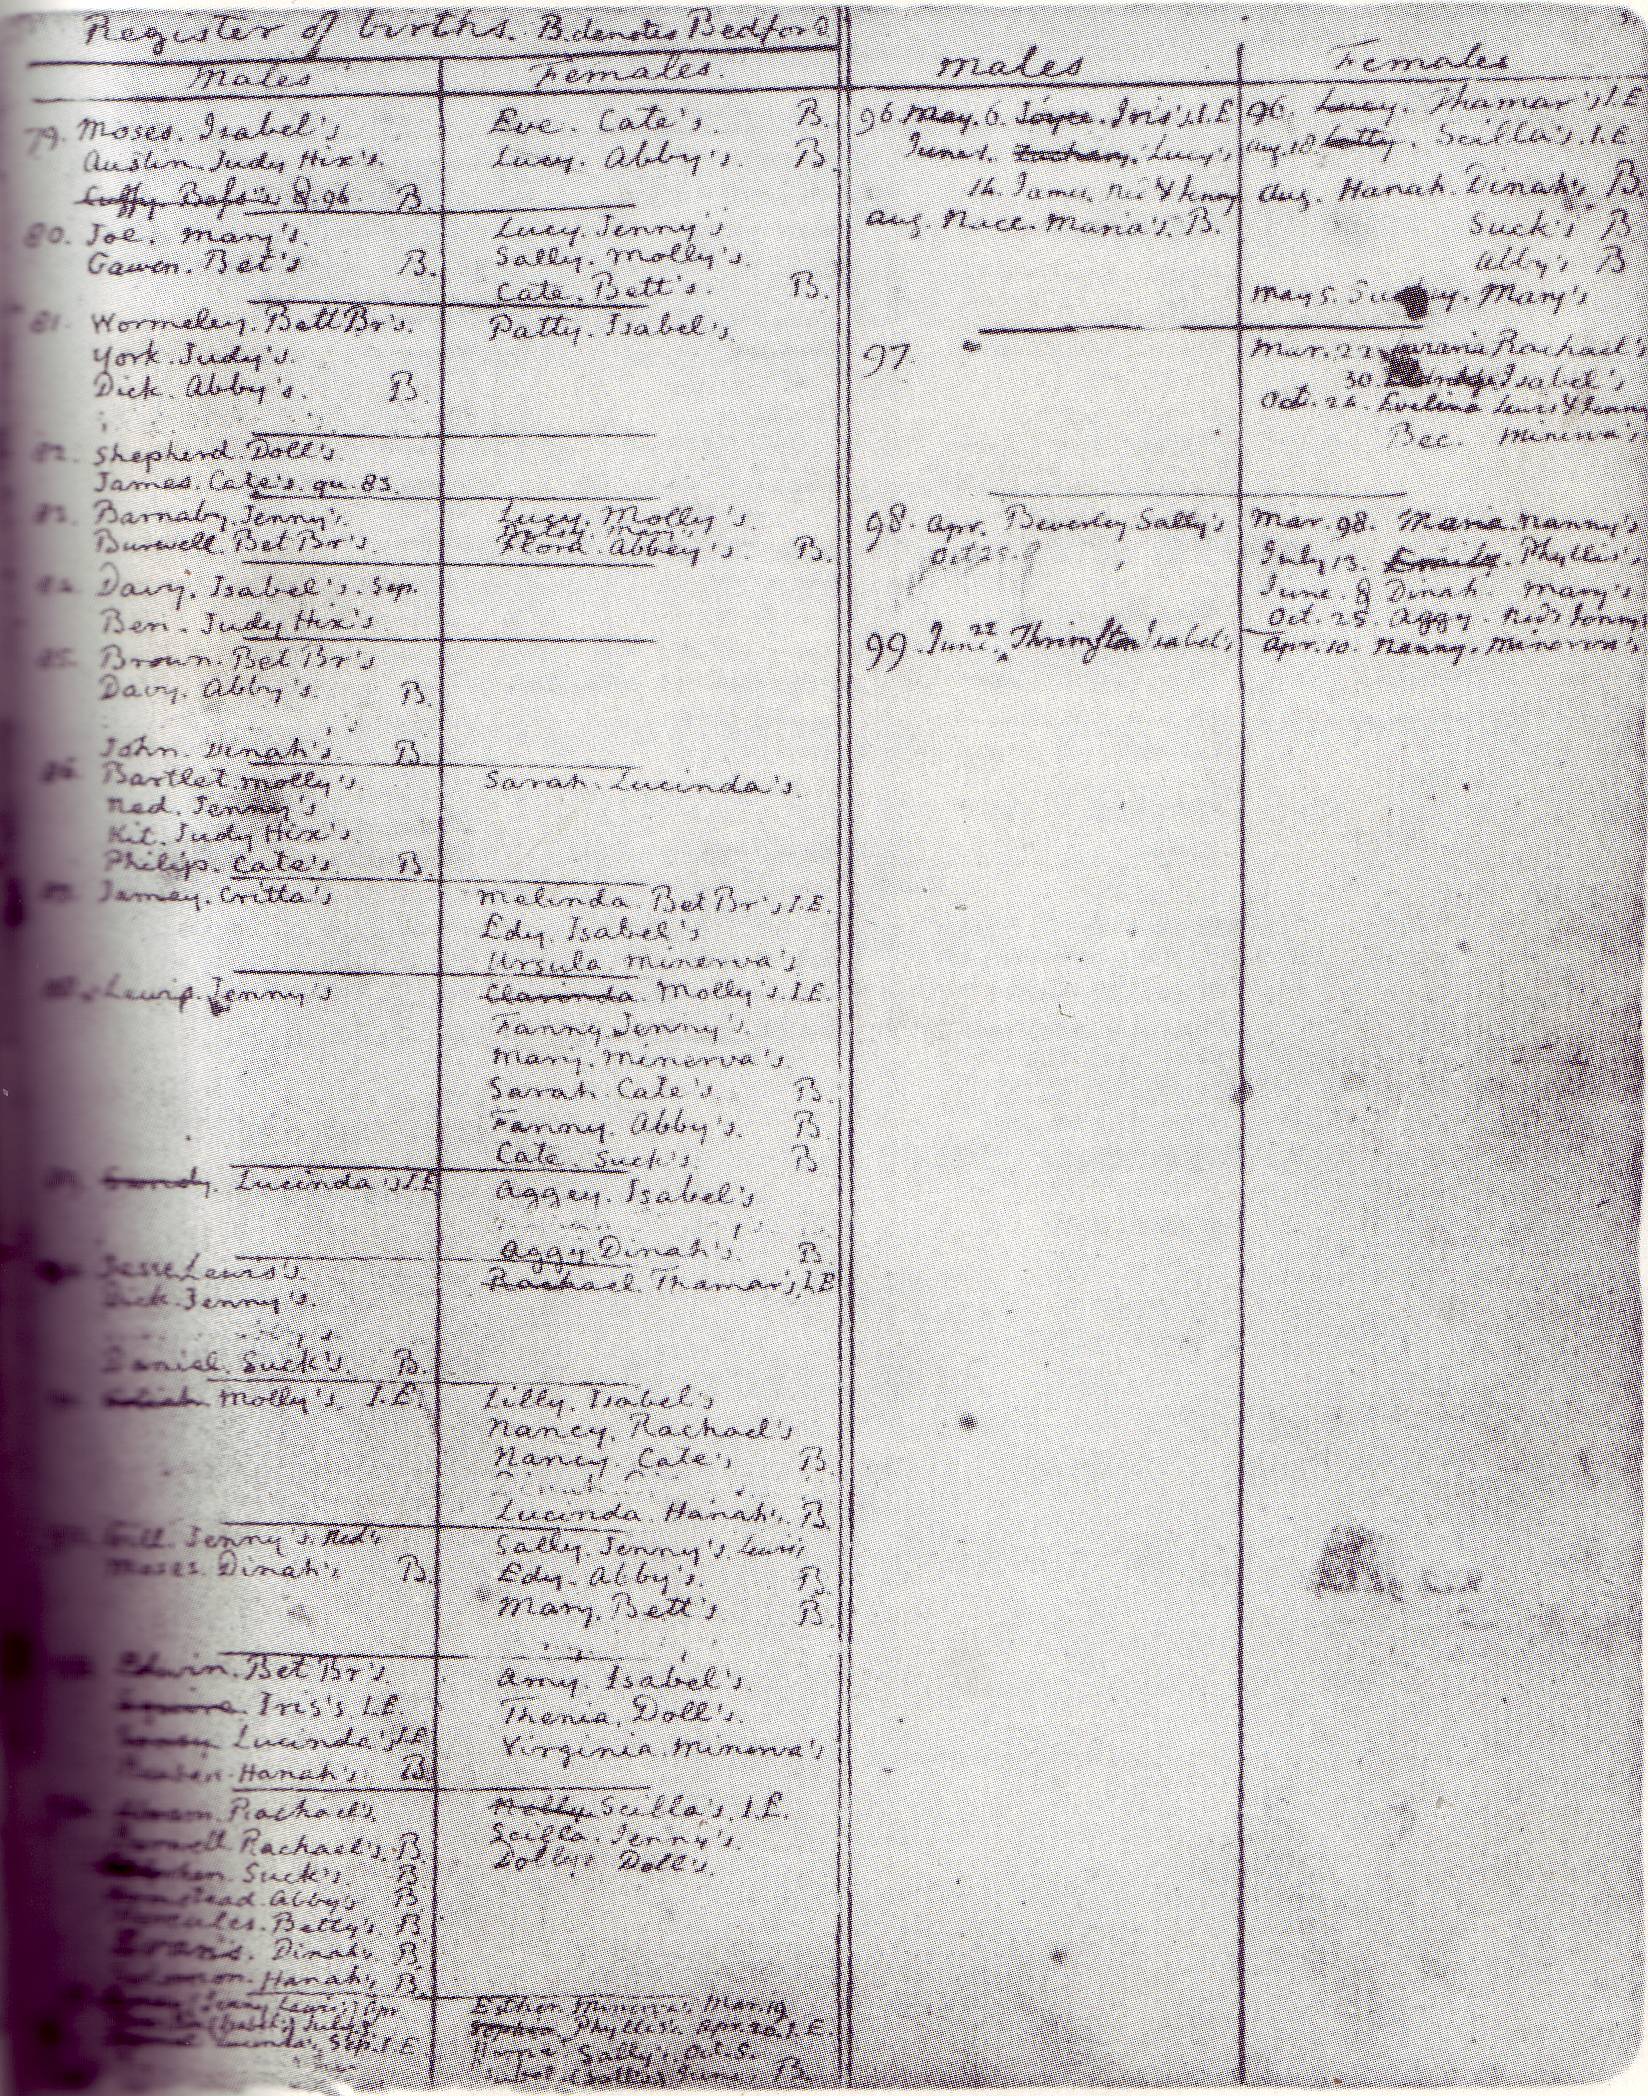 Register of births. B. denotes Bedford
Males
Females.
79. Moses. Isabel's
Austin. Judy Hix's.
Cuffy. Bess's. 96. B.
80. Joe. Mary's.
Gawen. Bet's B.
81. Wormeley. Bett Br's.
York. Judy's.
Dick. Abby's. B.
82. Shepherd. Doll's.
James. Cate's. qu. 83.
83. Barnaby. Jenny's.
Burwell. Bet Br's.
84. Davy. Isabel's. Sep.
Ben. Judy Hix's
85. Brown. Bet Br's
Davy. Abby's. B.
John. Dinah's B.
86. Bartlet. Molly's.
Ned. Jenny's
Kit. Judy Hix's.
Philip. Cate's. B.
Jamey. Critta's
Lewis. Jenny's
Lucinda's. I.E
Jesse Lewis's.
Dick. Jenny's.
Daniel. Suck's. B.
Molly's. I.E.
Gill. Jenny's. Ned's
Moses. Dinah's B.
Edwin. Bet Br's.
Iris's. I.E.
Lucinda's, I.E
Hanah's. B.
Rachael's.
Rachael's. B
Suck's. B
Abby's B
Betty's. B
Evans. Dinah's B
Hanah's B.
Eve. Cate's. B.
Lucy. Abby's. B
Lucy. Jenny's
Sally. Molly's.
Cate. Bett's. B.
Patty. Isabel's
Lucy. Molly's.
Flora. Abbey's. B.
Sarah. Lucinda's.
Melinda. Bet Br's, I.E.
Edy. Isabel's
Ursula Minerva's
Clarinda. Molly's. I.E.
Fanny. Jenny's.
Mary. Minerva's.
Sarah. Cate's. B.
Fanny. Abby's. B.
Cate. Suck's. B
Aggey. Isabel's
Aggy Dinah's. B
Rachael. Thamar's, I.E
Lilly. Isabel's
Nancy. Rachael's
Nancy. Cate's B
Lucinda. Hanah's. B.
Sally. Jenny's. Lewis's
Edy. Abby's. B
Mary. Bett's B.
Amy. Isabel's.
Thenia. Doll's.
Virginia. Minerva's
Molly. Scilla's. I.E.
Scilla. Jenny's.
Dolly. Doll's.
Esther Minerva's. Mar. 19
Sophia Phyllis's. Apr. 20. I.E.
Sally's. Oct. 5.
Males
Females
96 May. 6. Joyce. Iris's, I.E
June 1. Zachary. Lucy's
16. James. Ned & Jenny
Aug. Nace. Maria's. B.
97.
98. Apr. Beverley Sally's
Oct 25.
99. June 22 Thrimston Isabel's
96. Lucy. Thamar's I.E
Aug. 18 Letty. Scilla's. I.E
Aug. Hanah. Dinah's B
Suck's B
Abby's B
May 5. Suckey. Mary's
Mar. 22 Rachael's
30. Isabel's
Oct. 26. Evelina Lewis & Jenny
Bec. Minerva's
Mar. 98. Maria. Nanny's
July 13. Emily. Phyllis's
June. 8 Dinah. Mary's
Oct. 25. Aggy. Ned & Jenny
Apr. 10. Nanny. Minerva's